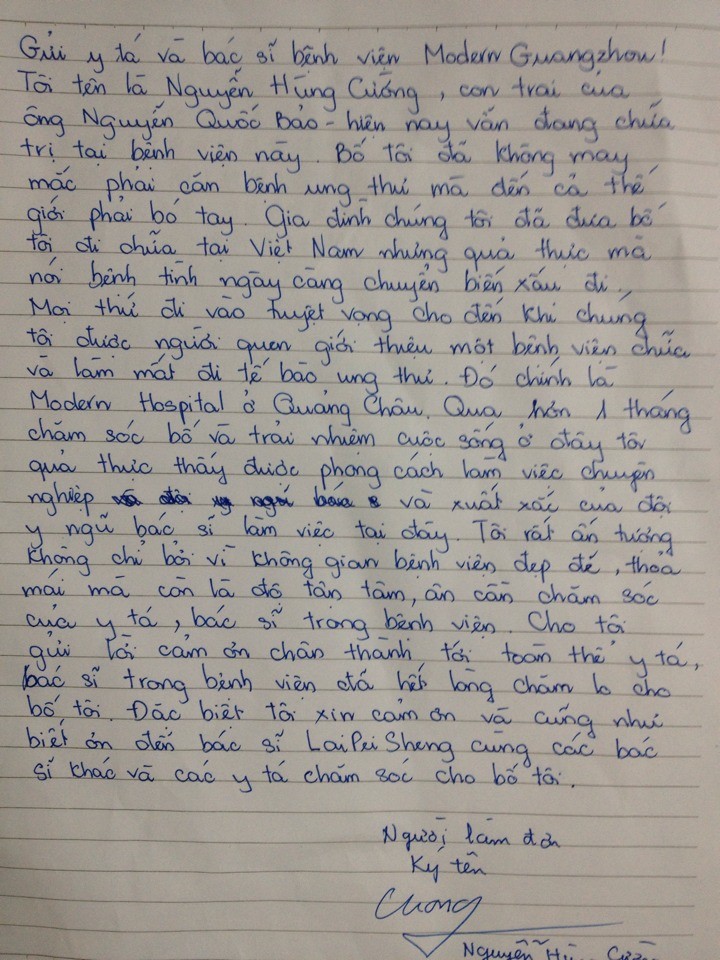 Gửi y tá và bác sĩ bệnh viện Modern Guangzhou!
Tôi tên là Nguyễn Hùng Cường, con trai của
ông Nguyễn Quốc Bảo - hiện nay vẫn đang chữa
trị tại bệnh viện này. Bố tôi đã không may
mắc phải căn bệnh ung thư mà đến cả thế
giới phải bó tay. Gia đình chúng tôi đã đưa bố
tôi đi chữa tại Việt Nam nhưng quả thực mà
nói bệnh tình ngày càng chuyển biến xấu đi.
Mọi thứ đi vào tuyệt vọng cho đến khi chúng
tôi được người quen giới thiệu một bệnh viện chữa
và làm mất đi tế bào ung thư. Đó chính là
Modern Hospital ở Quảng Châu. Qua hơn 1 tháng
chăm sóc bố và trải nhiệm cuộc sống ở đây tôi
quả thực thấy được phong cách làm việc chuyên
nghiệp và xuất xắc của đội
y ngũ bác sĩ làm việc tại đây. Tôi rất ấn tượng
không chỉ bởi vì không gian bệnh viện đẹp đẽ, thoả
mái mà còn là độ tận tâm, ân cần chăm sóc
của y tá, bác sĩ trong bệnh viện. Cho tôi
gửi lời cảm ơn chân thành tới toàn thể y tá,
bác sĩ trong bệnh viện đã hết lòng chăm lo cho
bố tôi. Đặc biệt tôi xin cảm ơn và cũng như
biết ơn đến bác sĩ LaiPeiSheng cùng các bác
sĩ khác và các y tá chăm sóc cho bố tôi.
Người làm đơn
Ký tên
Cuong
Nguyễn Hùng Cường